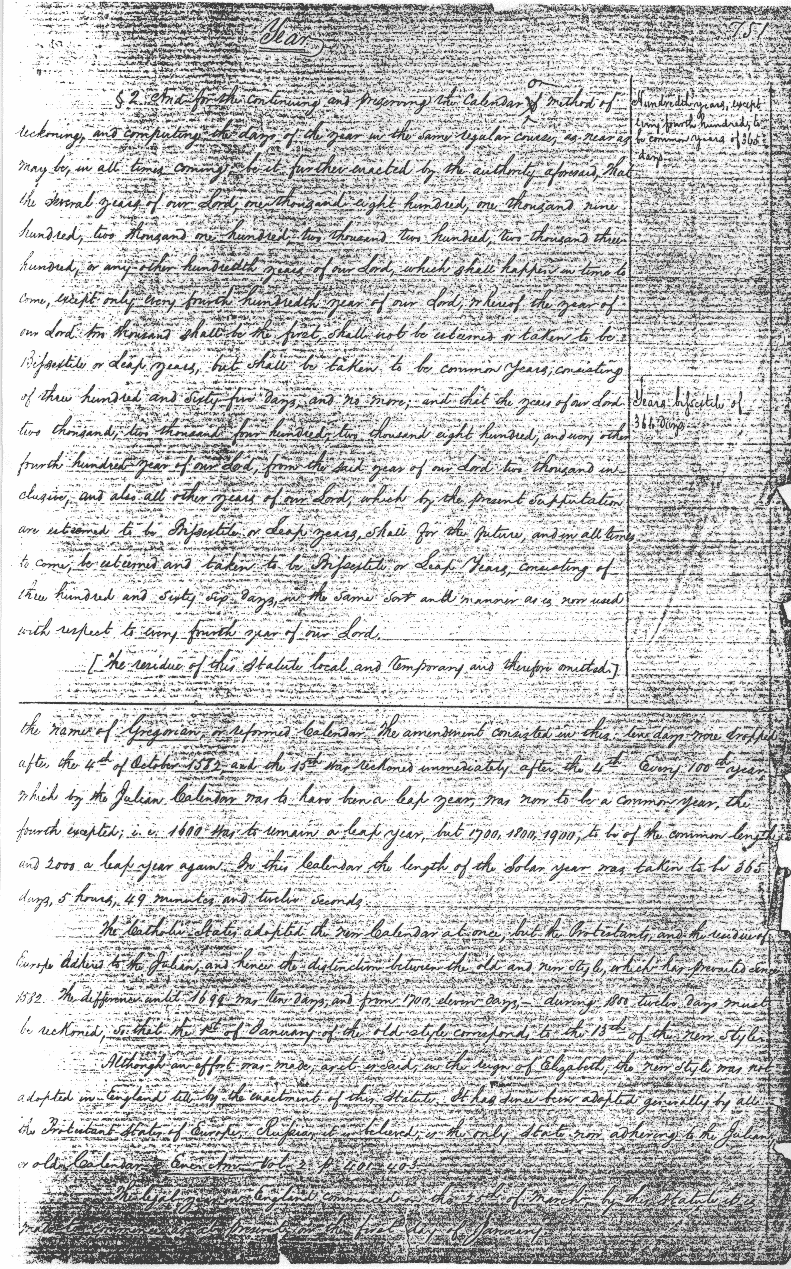 Year
751
§ 2. And for the continuing and preserving the Calendar or method of
reckoning, and computing the days of the year in the same regular course, as near as
may be, in all times coming; be it further enacted by the authority aforesaid, that
the several years of our Lord, one thousand eight hundred, one thousand nine
hundred, two thousand one hundred, two thousand two hundred, two thousand three
hundred, or any other hundredth years of our Lord, which shall happen in time to
come, except only every fourth hundredth year of our Lord, whereof the year of
our Lord two thousand shall be the first, shall not be esteemed or taken to be
Bissextile or Leap Years, but shall be taken to be common Years, consisting
of three hundred and sixty five Days, and no more; and that the years of our Lord
two thousand, two thousand four hundred, two thousand eight hundred, and every other
fourth hundred year of our Lord, from the said year of our Lord two thousand in-
clusive, and also all other years of our Lord, which by the present Supputation
are esteemed to be Bissextile or Leap years, shall for the future, and in all times
to come, be esteemed and taken to be Bissextile or Leap Years, consisting of
three hundred and sixty six days, in the same sort and manner as is now used
with respect to every fourth year of our Lord.
[The residue of this Statute local and temporary and therefore omitted.]
Hundredth years, except
every fourth hundred, to
be common years of 365
days.
Years bissextile of
366 days.
the name of Gregorian, or reformed Calendar. The amendment consisted in this: ten days were dropped
after the 4th of October 1582 and the 15th was reckoned immediately after the 4th. Every 100th year,
which by the Julian Calendar was to have been a leap year, was now to be a common year, the
fourth excepted; i.e. 1600 was to remain a leap year, but 1700, 1800, 1900, to be of the common length,
and 2000 a leap year again. In this Calendar the length of the Solar year was taken to be 365
days, 5 hours, 49 minutes and twelve seconds.
The Catholic States adopted the new Calendar at once, but the Protestants, and the residue of
Europe adhered to the Julian; and hence the distinction between the old and new Style, which has prevailed since
1582. The difference until 1699 was ten days, and from 1700, eleven days,— during 1800 twelve days must
be reckoned, so that the 1st of January of the old style corresponds to the 13th of the new Style.
Although an effort was made, as it is said, in the reign of Elizabeth, the new Style was not
adopted in England till by the enactment of this Statute. It has since been adopted generally by all
the Protestant States of Europe. Russia, it is believed, is the only state now adhering to the Julian
or older Calendar. Vol. 2 p. 401-403
The legal year in England commenced on the 25th of March by this Statute it is
made to commence at present on the first day of January.